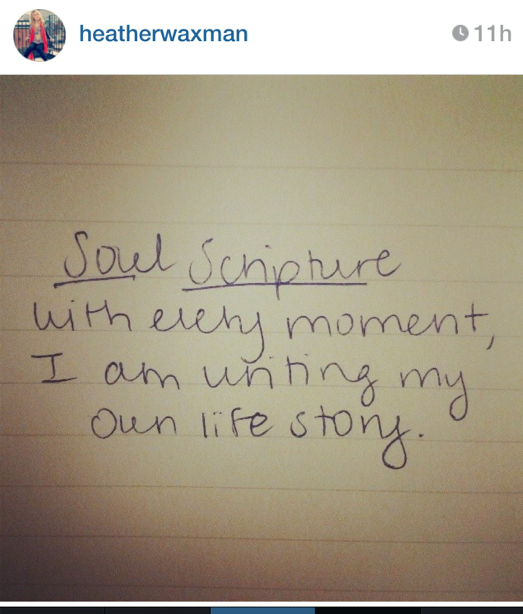 heatherwaxman
11h
Soul Scripture
with every moment,
I am writing my
own life story.